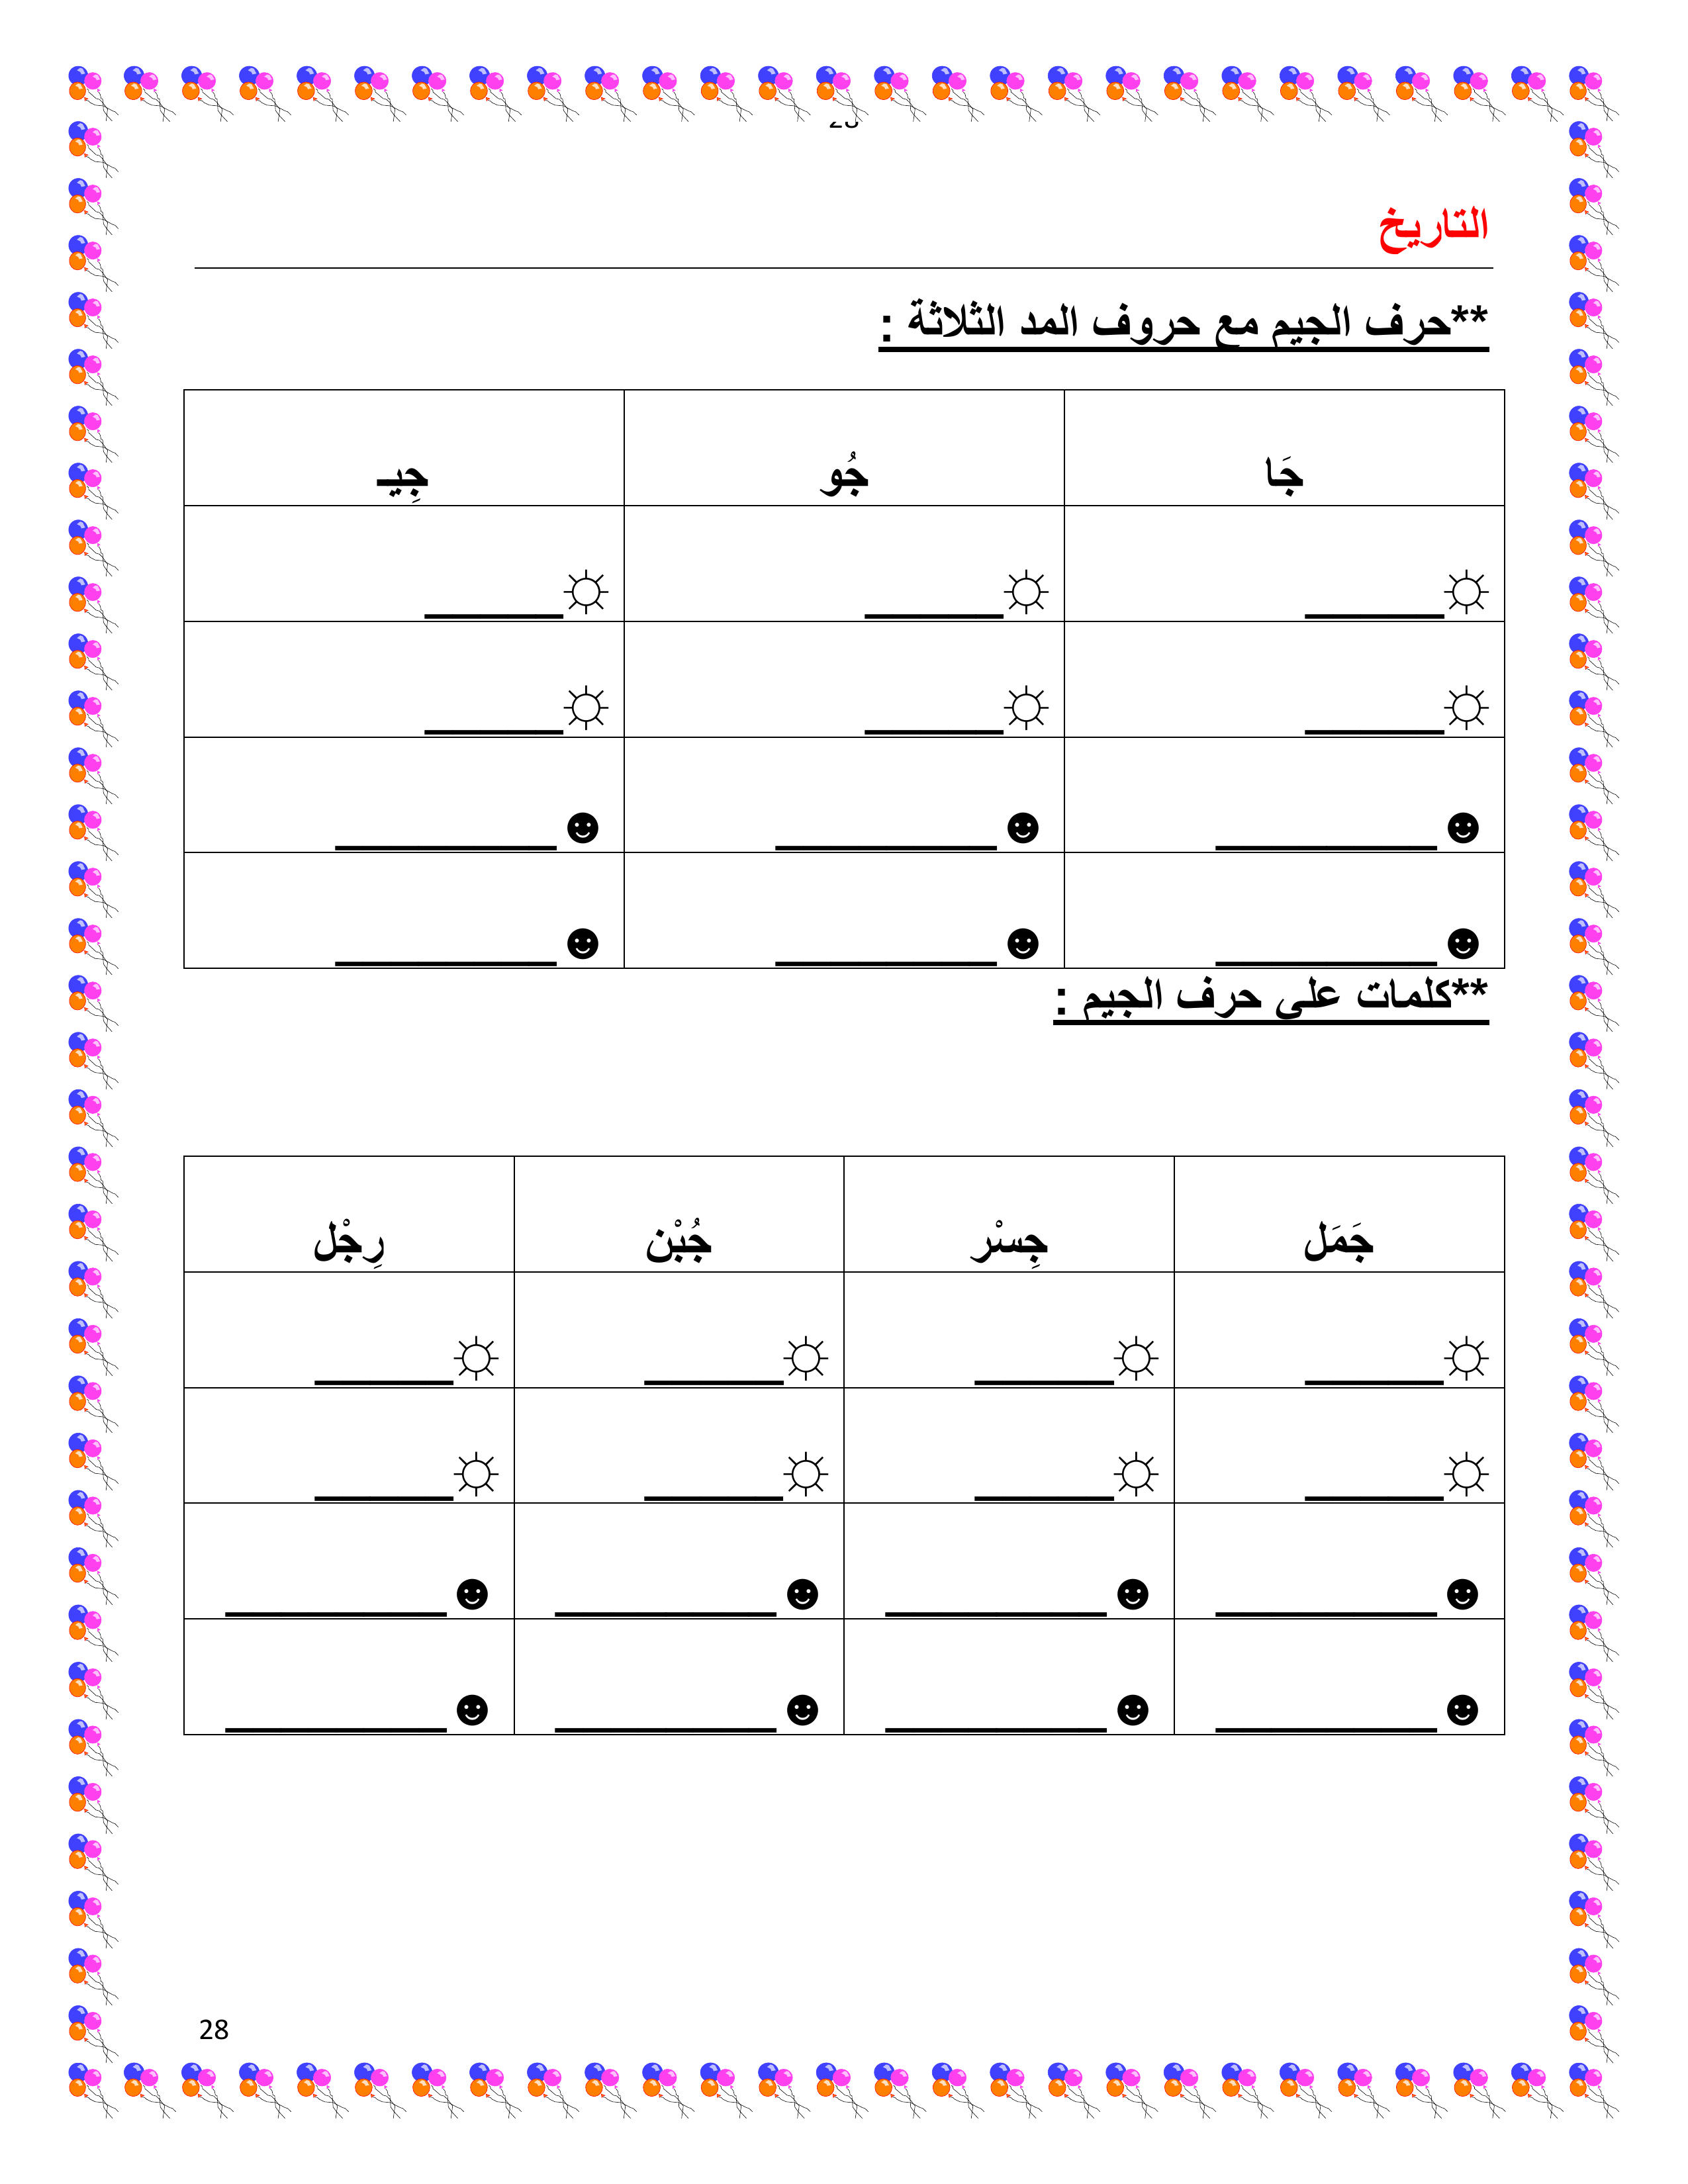 التاريخ
**حرف الجيم مع حروف المد الثلاثة :
جَا جُو جِيـ
☼______ ☼______ ☼______
☼______ ☼______ ☼______
☻ ________ ☻ ________ ☻ ________
☻ ________ ☻ ________ ☻ ________
**كلمات على حرف الجيم :
جَمَل جِسْر جُبْن رِجْل
☼______ ☼______ ☼______ ☼______
☼______ ☼______ ☼______ ☼______
☻ ________ ☻ ________ ☻ ________ ☻ ________
☻ ________ ☻ ________ ☻ ________ ☻ ________
28